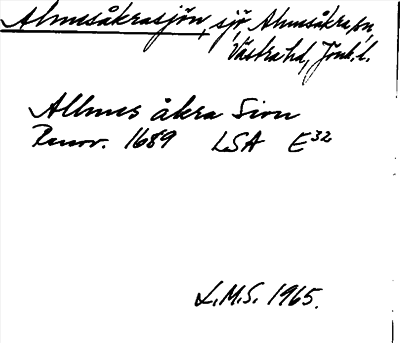 Almesåkrasjön, sjö, Almesåkra sn,
Västra hd, Jönk. l.
Allmes åkra Siön
Renov. 1689 LSA E32
L.M.S. 1965.